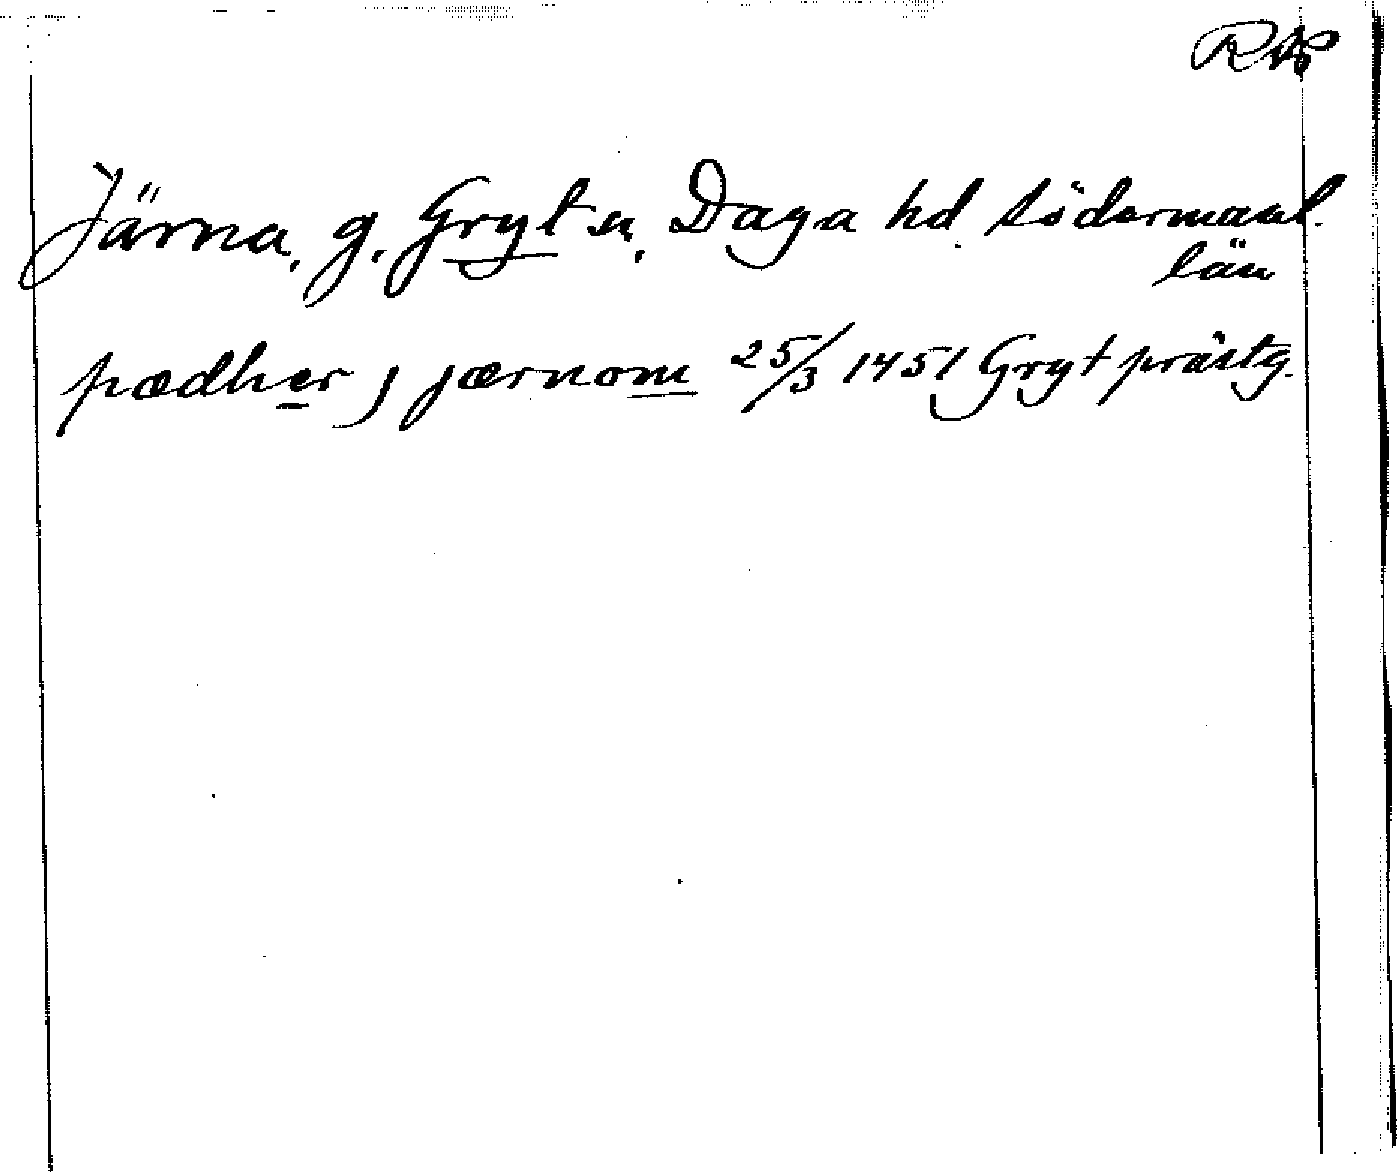 RAP
Järna, g. Gryt sn, Daga hd Södermanl.
län
pædher j jærnom 25/3 1451 Gryt prästg.